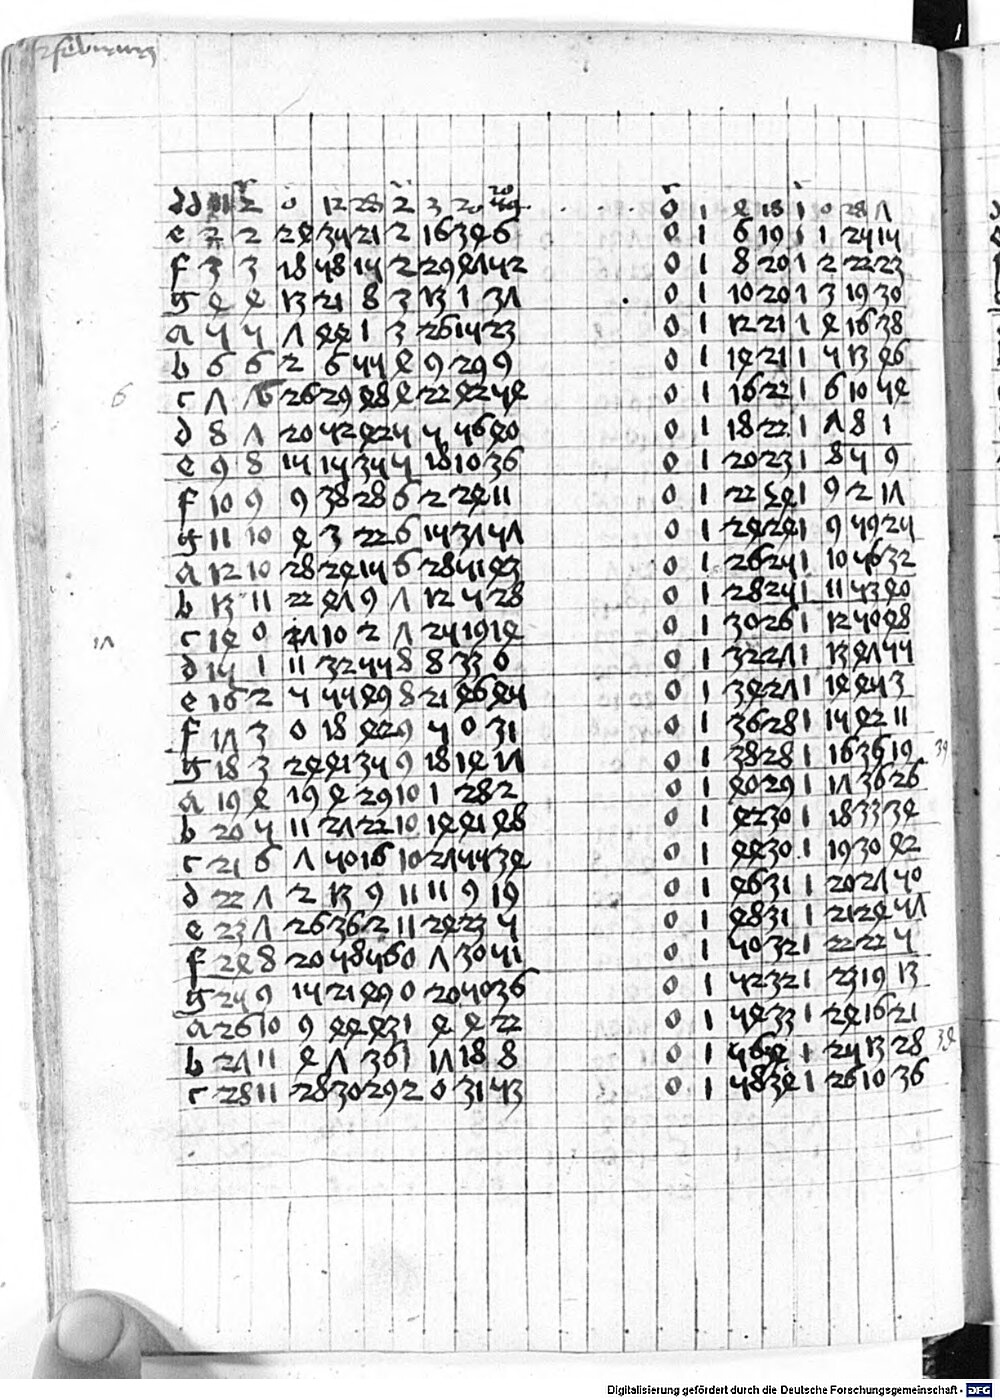 februarius
d 2 0 12 28 2 3 20 0 1 4 18 1 0 28 7
e 2 2 24 35 21 2 16 34 6 0 1 6 19 1 1 25 15
f 3 3 18 58 15 2 29 47 52 0 1 8 20 1 2 22 23
g 4 4 13 21 8 3 13 1 37 0 1 10 20 1 3 19 30
a 5 5 7 44 1 3 26 15 23 0 1 12 21 1 4 16 38
b 6 6 2 6 55 4 9 29 9 0 1 14 21 1 5 13 46
6 c 7 6 26 29 48 4 22 42 54 0 1 16 22 1 6 10 54
d 8 7 20 52 42 5 5 56 40 0 1 18 22 1 7 8 1
e 9 8 15 15 35 5 18 10 36 0 1 20 23 1 8 5 9
f 10 9 9 38 28 6 2 24 11 0 1 22 24 1 9 2 17
g 11 10 4 3 22 6 15 37 57 0 1 24 24 1 9 59 25
a 12 10 28 24 15 6 28 51 43 0 1 26 25 1 10 56 32
b 13 11 22 47 9 7 12 5 28 0 1 28 25 1 11 53 40
17 c 14 0 17 10 2 7 25 19 14 0 1 30 26 1 12 50 48
d 15 1 11 32 55 8 8 33 0 0 1 32 27 1 13 47 55
e 16 2 5 55 49 8 21 46 45 0 1 34 27 1 14 45 3
f 17 3 0 18 42 9 5 0 31 0 1 36 28 1 15 42 11
g 18 3 24 41 35 9 18 14 17 0 1 38 28 1 16 36 19 39
a 19 4 19 4 29 10 1 28 2 0 1 40 29 1 17 36 26
b 20 5 11 27 22 10 14 41 48 0 1 42 30 1 18 33 34
c 21 6 7 50 16 10 27 55 34 0 1 44 30 1 19 30 42
d 22 7 2 13 9 11 11 9 19 0 1 46 31 1 20 27 50
e 23 7 26 36 2 11 24 23 5 0 1 48 31 1 21 24 57
f 24 8 20 58 56 0 7 30 51 0 1 50 32 1 22 22 5
g 25 9 15 21 49 0 20 50 36 0 1 52 32 1 23 19 13
a 26 10 9 44 43 1 4 4 22 0 1 54 33 1 24 16 21
b 27 11 4 7 36 1 17 18 8 0 1 56 1 25 13 28 34
c 28 11 28 30 29 2 0 31 53 0 1 58 34 1 26 10 36
Digitalisierung gefördert durch die Deutsche Forschungsgemeinschaft - DFG